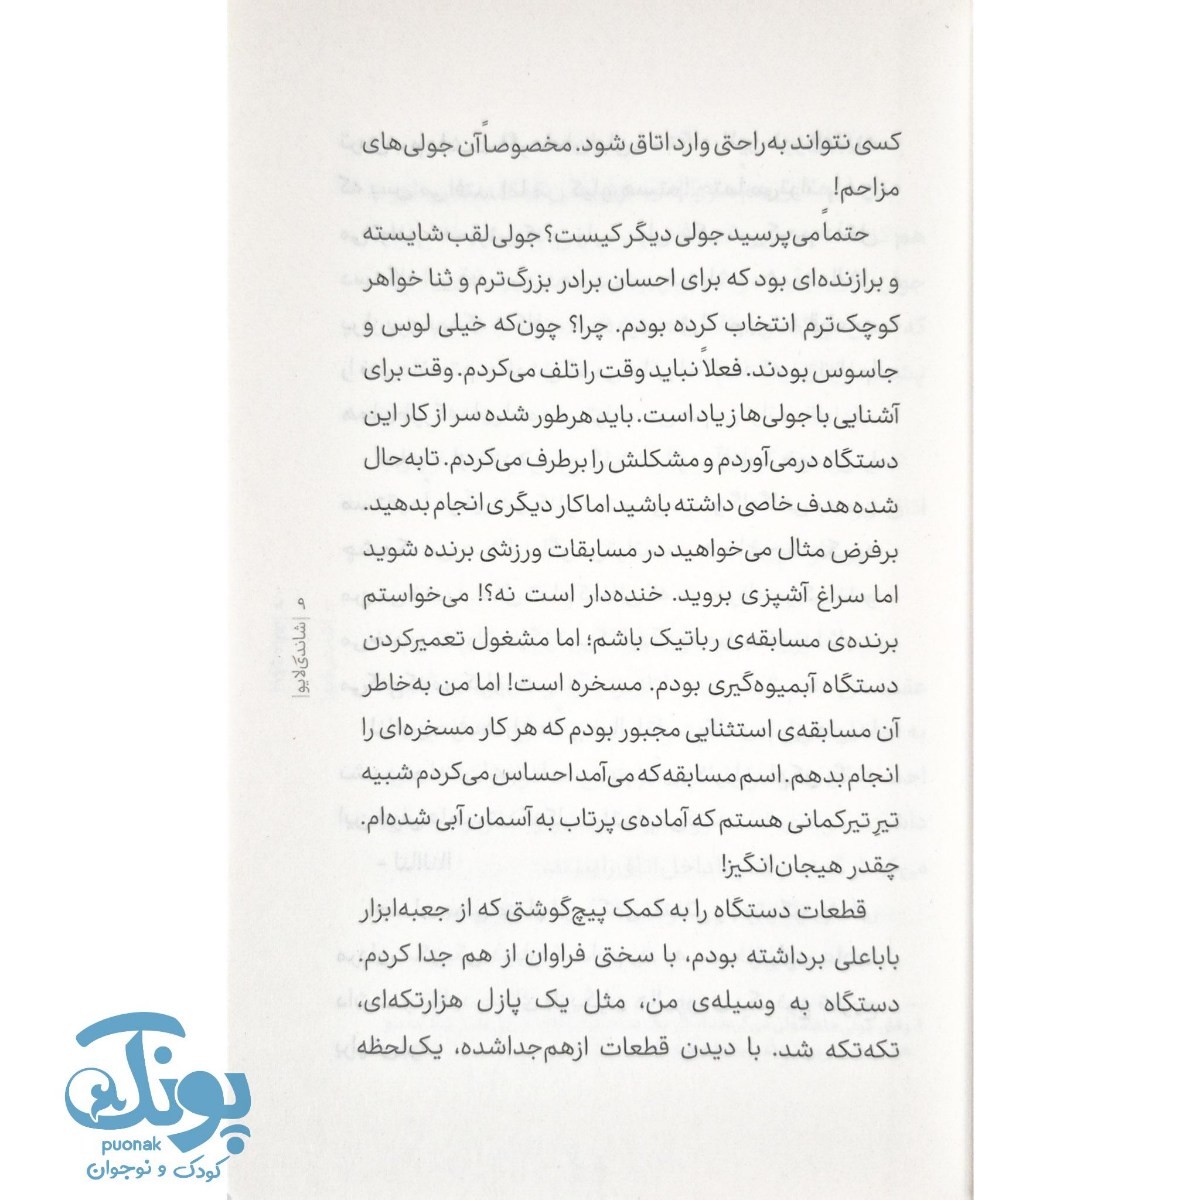 کسی نتواند به‌راحتی وارد اتاق شود. مخصوصاً آن جولی‌های
مزاحم!
حتماً می‌پرسید جولی دیگر کیست؟ جولی لقب شایسته
و برازنده‌ای بود که برای احسان برادر بزرگ‌ترم و ثنا خواهر
کوچک‌ترم انتخاب کرده بودم. چرا؟ چون‌که خیلی لوس و
جاسوس بودند. فعلاً نباید وقت را تلف می‌کردم. وقت برای
آشنایی با جولی‌ها زیاد است. باید هرطور شده سر از کار این
دستگاه درمی‌آوردم و مشکلش را برطرف می‌کردم. تابه‌حال
شده هدف خاصی داشته باشید اما کار دیگری انجام بدهید.
برفرض مثال می‌خواهید در مسابقات ورزشی برنده شوید
اما سراغ آشپزی بروید. خنده‌دار است نه؟! می‌خواستم
برنده‌ی مسابقه‌ی رباتیک باشم؛ اما مشغول تعمیرکردن
دستگاه آبمیوه‌گیری بودم. مسخره است! اما من به‌خاطر
آن مسابقه‌ی استثنایی مجبور بودم که هر کار مسخره‌ای را
انجام بدهم. اسم مسابقه که می‌آمد احساس می‌کردم شبیه
تیرِ تیرکمانی هستم که آماده‌ی پرتاب به آسمان آبی شده‌ام.
چقدر هیجان‌انگیز!
قطعات دستگاه را به کمک پیچ‌گوشتی که از جعبه‌ابزار
باباعلی برداشته بودم، با سختی فراوان از هم جدا کردم.
دستگاه به وسیله‌ی من، مثل یک پازل هزارتکه‌ای،
تکه‌تکه شد. با دیدن قطعات ازهم‌جداشده، یک‌لحظه
|شاندی‌لایو|
پونک
puonak
کودک و نوجوان